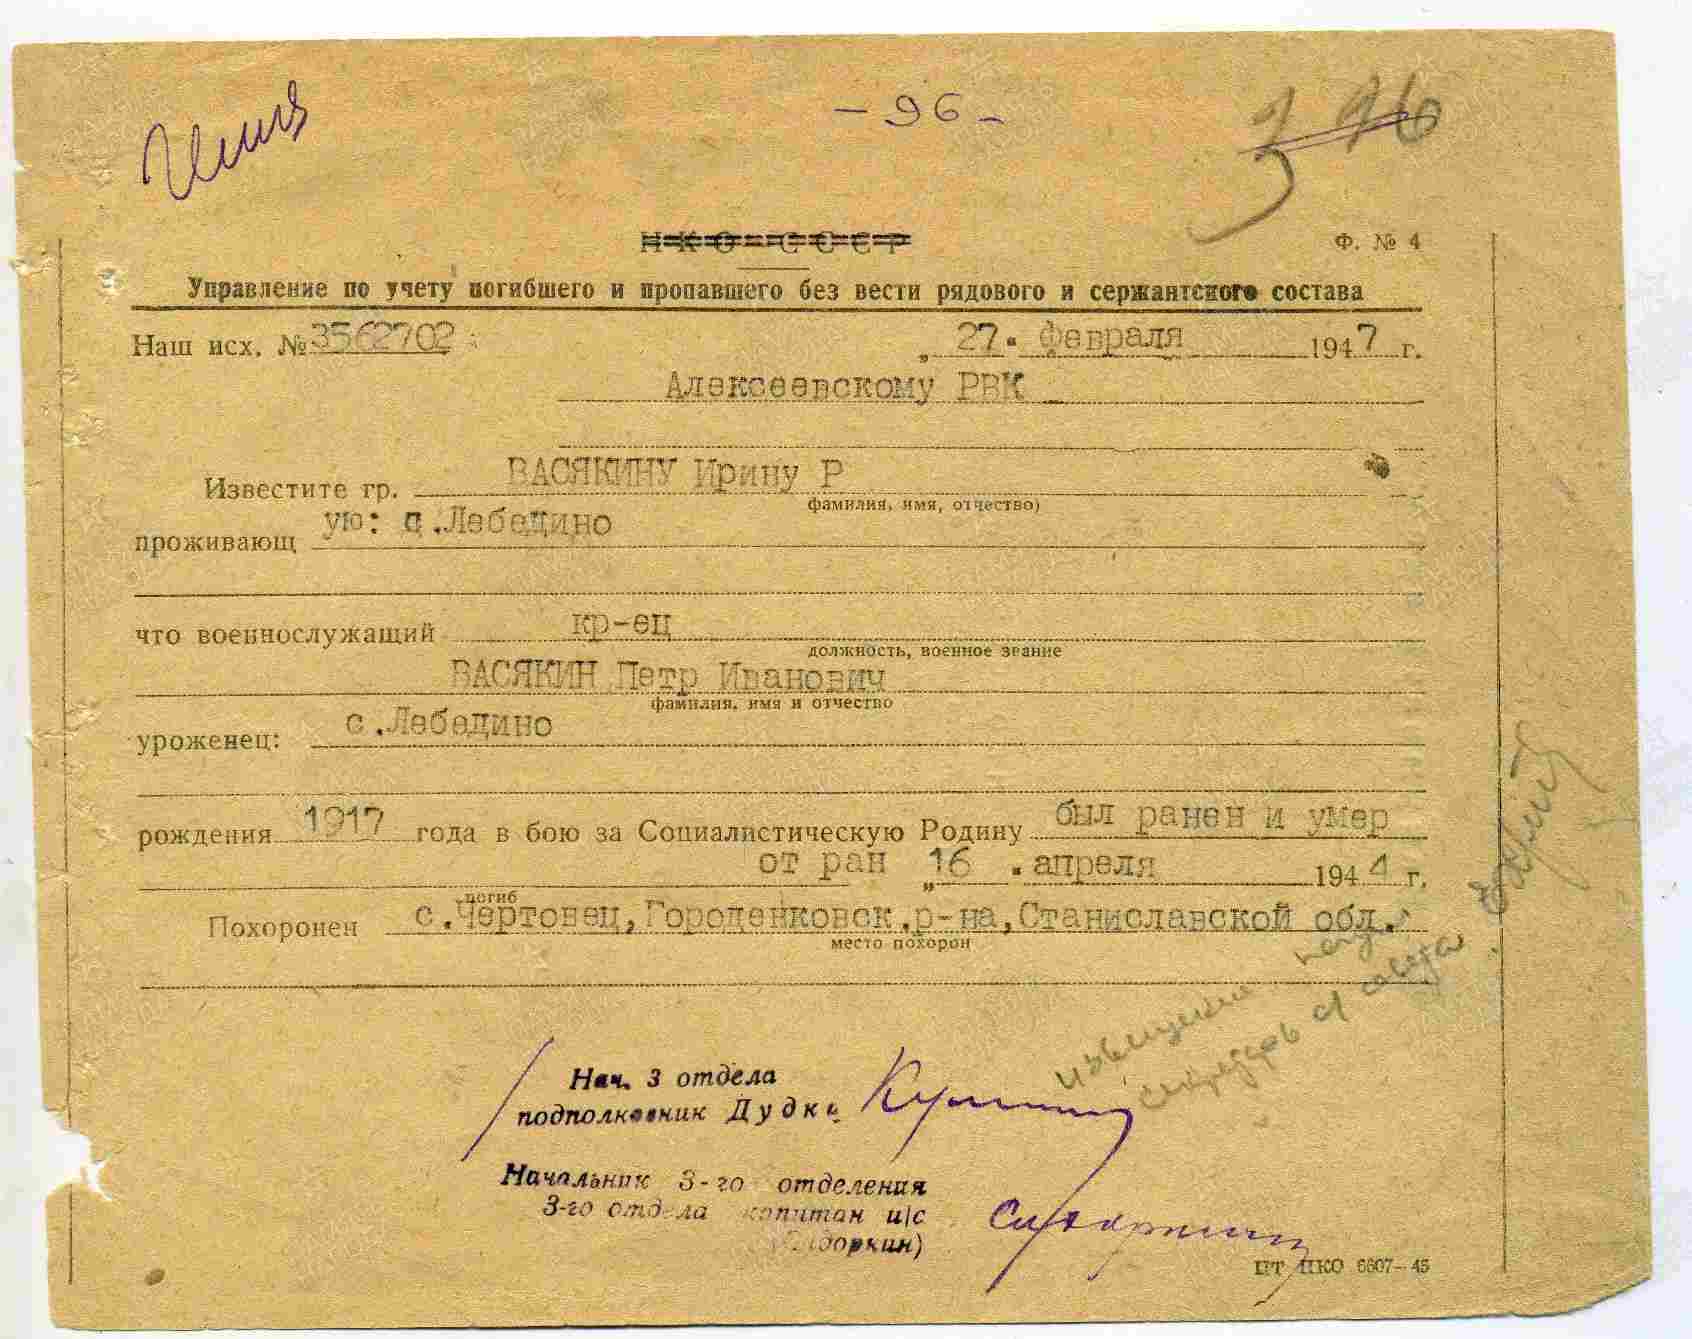 - 96 -
НКО СССР
Ф. № 4
Управление по учету погибшего и пропавшего без вести рядового и сержантского состава
Наш исх. № 3562702 „27." февраля 1947 г.
Алексеевскому РВК
Известите гр. ВАСЯКИНУ Ирину Р
фамилия, имя, отчество)
проживающ ую: с.Лебедино
что военнослужащий кр-ец
должность, военное звание
ВАСЯКИН Петр Иванович
фамилия, имя и отчество
уроженец: с.Лебедино
рождения 1917 года в бою за Социалистическую Родину был ранен и умер
от ран „16". апреля 1944 г.
погиб
Похоронен с.Чертовец, Городенковск.р-на, Станиславской обл.
место похорон
извещение
секретарь с/совета
Нач. 3 отдела
подполковник Дудка
Начальник 3-го отделения
3-го отдела капитан и/с
(Сидоркин)
ЦТ НКО 6607-45